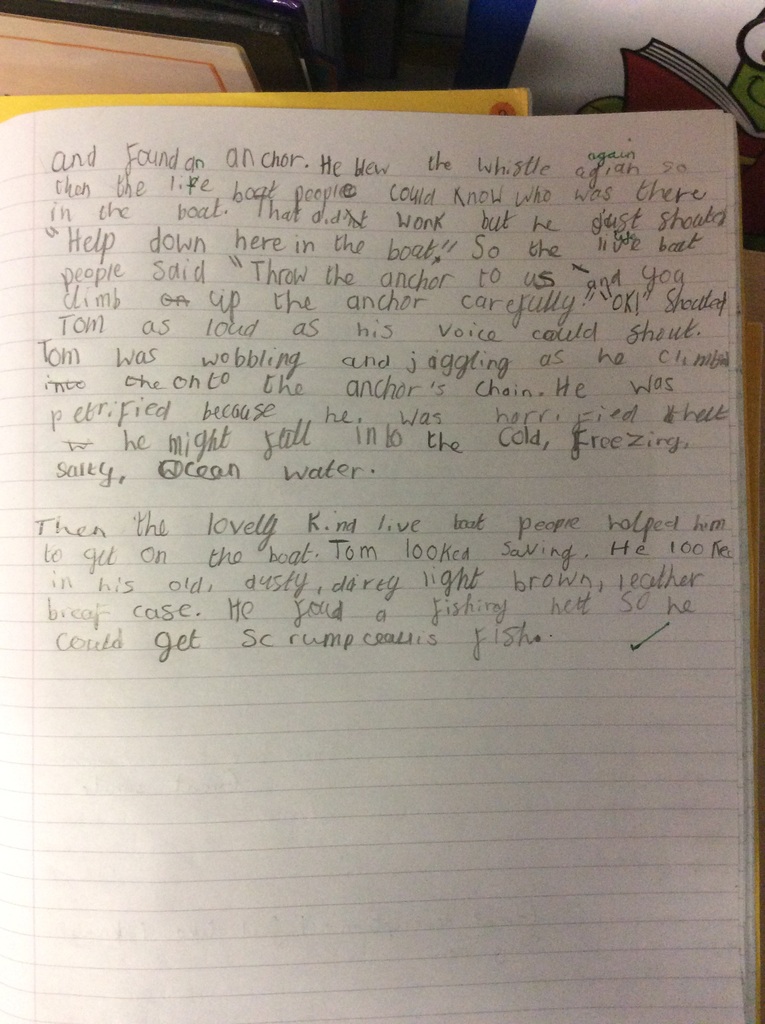 and found an anchor. He blew the whistle again agian so
then the life boat people could know who was there
in the boat. That didnt work but he just shouted
"Help down here in the boat!" So the live boat
people said "Throw the anchor to us and you
climb on up the anchor carefully!" "OK!" Shouted
Tom as loud as his voice could shout.
Tom was wobbling and joggling as he climbed
into the onto the anchor's chain. He was
petrified because he was horrified thatt
he might fall into the cold, freezing,
salty, Ocean water.
Then the lovely kind live boat people helped him
to get on the boat. Tom looked saving. He looked
in his old, dusty, darcy light brown, leather
breaf case. He foud a fishing nett so he
could get scrumpceauis fish.